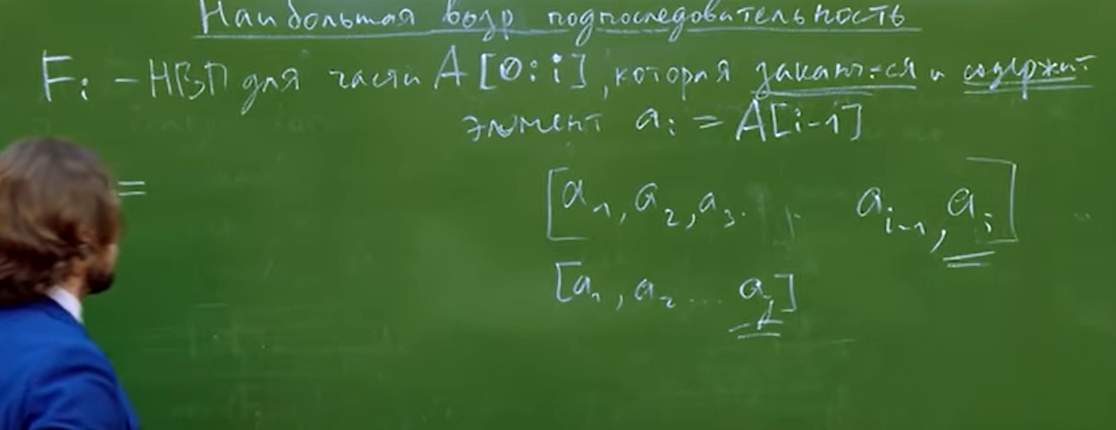 Наибольшая возр подпоследовательность
Fᵢ - НВП для части A[0:i], которая законч-ся и содержит
элемент aᵢ = A[i-1]
=
[a₁, a₂, a₃. , aᵢ₋₁, aᵢ]
[a₁, a₂ ... aⱼ]